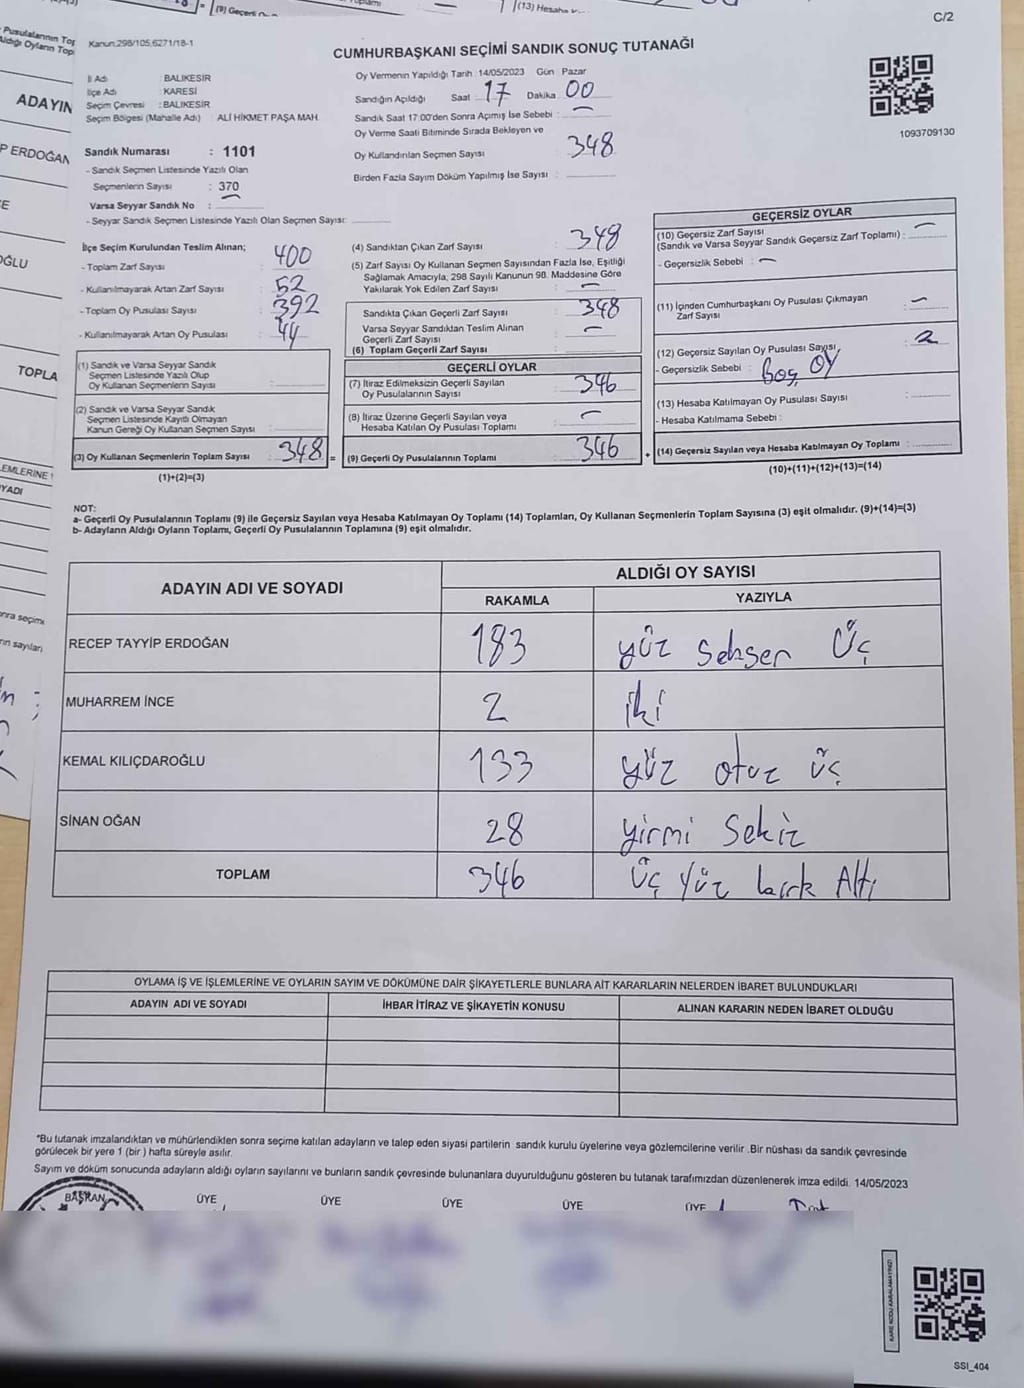 (9) Geçerli
(13) Hesaba
C/2
Kanun:298/105,6271/18-1
CUMHURBAŞKANI SEÇİMİ SANDIK SONUÇ TUTANAĞI
İl Adı : BALIKESİR
İlçe Adı : KARESİ
Seçim Çevresi : BALIKESİR
Seçim Bölgesi (Mahalle Adı) : ALİ HİKMET PAŞA MAH.
Oy Vermenin Yapıldığı Tarih : 14/05/2023 Gün : Pazar
Sandığın Açıldığı Saat 17 Dakika 00
Sandık Saat 17:00'den Sonra Açılmış İse Sebebi : —
Oy Verme Saati Bitiminde Sırada Bekleyen ve
Oy Kullandırılan Seçmen Sayısı : 348
Birden Fazla Sayım Döküm Yapılmış İse Sayısı :
1093709130
Sandık Numarası : 1101
- Sandık Seçmen Listesinde Yazılı Olan
Seçmenlerin Sayısı : 370
Varsa Seyyar Sandık No : —
- Seyyar Sandık Listesinde Yazılı Olan Seçmen Sayısı:
İlçe Seçim Kurulundan Teslim Alınan;
- Toplam Zarf Sayısı : 400
- Kullanılmayarak Artan Zarf Sayısı : 52
- Toplam Oy Pusulası Sayısı : 392
- Kullanılmayarak Artan Oy Pusulası : 44
(1) Sandık ve Varsa Seyyar Sandık
Seçmen Listesinde Yazılı Olup
Oy Kullanan Seçmenlerin Sayısı :
(2) Sandık ve Varsa Seyyar Sandık
Seçmen Listesinde Kayıtlı Olmayan
Kanun Gereği Oy Kullanan Seçmen Sayısı :
(3) Oy Kullanan Seçmenlerin Toplam Sayısı : 348
(1)+(2)=(3)
(4) Sandıktan Çıkan Zarf Sayısı : 348
(5) Zarf Sayısı Oy Kullanan Seçmen Sayısından Fazla İse, Eşitliği
Sağlamak Amacıyla, 298 Sayılı Kanunun 98. Maddesine Göre
Yakılarak Yok Edilen Zarf Sayısı : —
Sandıkta Çıkan Geçerli Zarf Sayısı : 348
Varsa Seyyar Sandıktan Teslim Alınan
Geçerli Zarf Sayısı : —
(6) Toplam Geçerli Zarf Sayısı :
GEÇERLİ OYLAR
(7) İtiraz Edilmeksizin Geçerli Sayılan
Oy Pusulalarının Sayısı : 346
(8) İtiraz Üzerine Geçerli Sayılan veya
Hesaba Katılan Oy Pusulası Toplamı : —
= (9) Geçerli Oy Pusulalarının Toplamı : 346
GEÇERSİZ OYLAR
(10) Geçersiz Zarf Sayısı
(Sandık ve Varsa Seyyar Sandık Geçersiz Zarf Toplamı) : —
- Geçersizlik Sebebi : —
(11) İçinden Cumhurbaşkanı Oy Pusulası Çıkmayan
Zarf Sayısı : —
(12) Geçersiz Sayılan Oy Pusulası Sayısı : 2
- Geçersizlik Sebebi : Boş OY
(13) Hesaba Katılmayan Oy Pusulası Sayısı :
- Hesaba Katılmama Sebebi :
+ (14) Geçersiz Sayılan veya Hesaba Katılmayan Oy Toplamı :
(10)+(11)+(12)+(13)=(14)
NOT:
a- Geçerli Oy Pusulalarının Toplamı (9) ile Geçersiz Sayılan veya Hesaba Katılmayan Oy Toplamı (14) Toplamları, Oy Kullanan Seçmenlerin Toplam Sayısına (3) eşit olmalıdır. (9)+(14)=(3)
b- Adayların Aldığı Oyların Toplamı, Geçerli Oy Pusulalarının Toplamına (9) eşit olmalıdır.
ADAYIN ADI VE SOYADI
ALDIĞI OY SAYISI
RAKAMLA YAZIYLA
RECEP TAYYİP ERDOĞAN 183 yüz seksen üç
MUHARREM İNCE 2 iki
KEMAL KILIÇDAROĞLU 133 yüz otuz üç
SİNAN OĞAN 28 yirmi sekiz
TOPLAM 346 üç yüz kırk Altı
OYLAMA İŞ VE İŞLEMLERİNE VE OYLARIN SAYIM VE DÖKÜMÜNE DAİR ŞİKAYETLERLE BUNLARA AİT KARARLARIN NELERDEN İBARET BULUNDUKLARI
ADAYIN ADI VE SOYADI İHBAR İTİRAZ VE ŞİKAYETİN KONUSU ALINAN KARARIN NEDEN İBARET OLDUĞU
*Bu tutanak imzalandıktan ve mühürlendikten sonra seçime katılan adayların ve talep eden siyasi partilerin sandık kurulu üyelerine veya gözlemcilerine verilir .Bir nüshası da sandık çevresinde
görülecek bir yere 1 (bir ) hafta süreyle asılır.
Sayım ve döküm sonucunda adayların aldığı oyların sayılarını ve bunların sandık çevresinde bulunanlara duyurulduğunu gösteren bu tutanak tarafımızdan düzenlenerek imza edildi. 14/05/2023
BAŞKAN ÜYE ÜYE ÜYE ÜYE ÜYE
KARE KODU KARALAMAYINIZ!
SSI_404